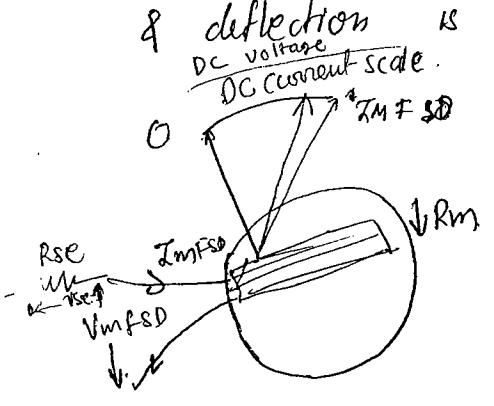 & deflection is
DC voltage
DC current scale.
O
ImFSD
Rm
Rse
ImFSD
Vse
VmFSD